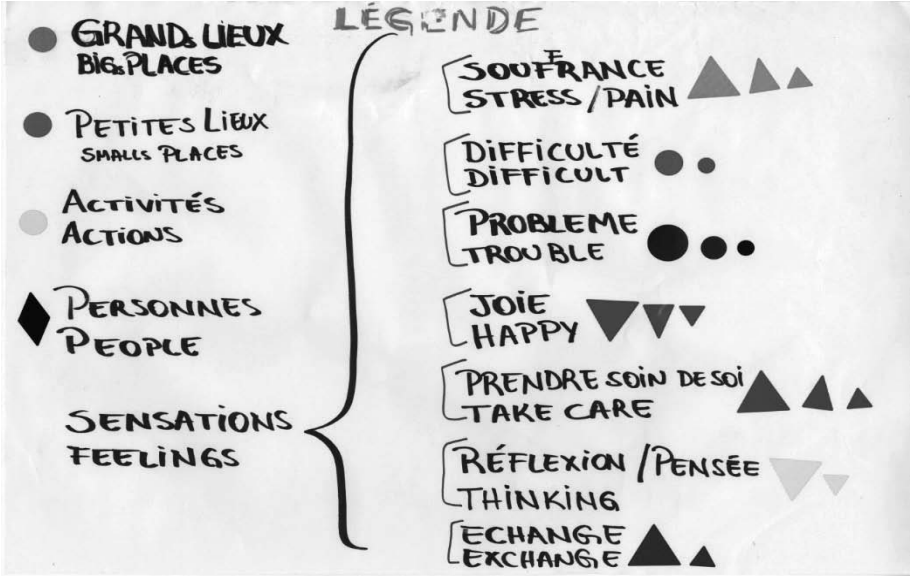 LÉGENDE
GRANDs LIEUX
BIGs PLACES
PETITES LIEUX
SMALLs PLACES
ACTIVITÉS
ACTIONS
PERSONNES
PEOPLE
SENSATIONS
FEELINGS
SOUFFRANCE
STRESS/PAIN
DIFFICULTÉ
DIFFICULT
PROBLEME
TROUBLE
JOIE
HAPPY
PRENDRE SOIN DE SOI
TAKE CARE
RÉFLEXION/PENSÉE
THINKING
ECHANGE
EXCHANGE